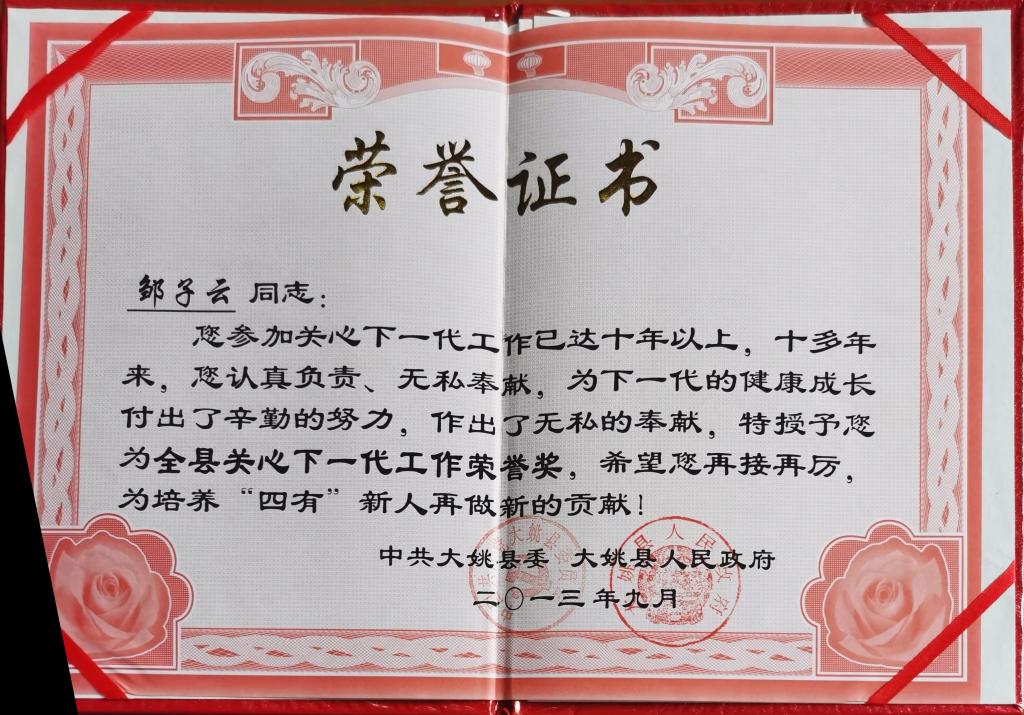 荣誉证书
邹子云 同志：
您参加关心下一代工作已达十年以上，十多年
来，您认真负责、无私奉献，为下一代的健康成长
付出了辛勤的努力，作出了无私的奉献，特授予您
为全县关心下一代工作荣誉奖，希望您再接再厉，
为培养“四有”新人再做新的贡献！
中共大姚县委 大姚县人民政府
二〇一三年九月
大姚县人民政府